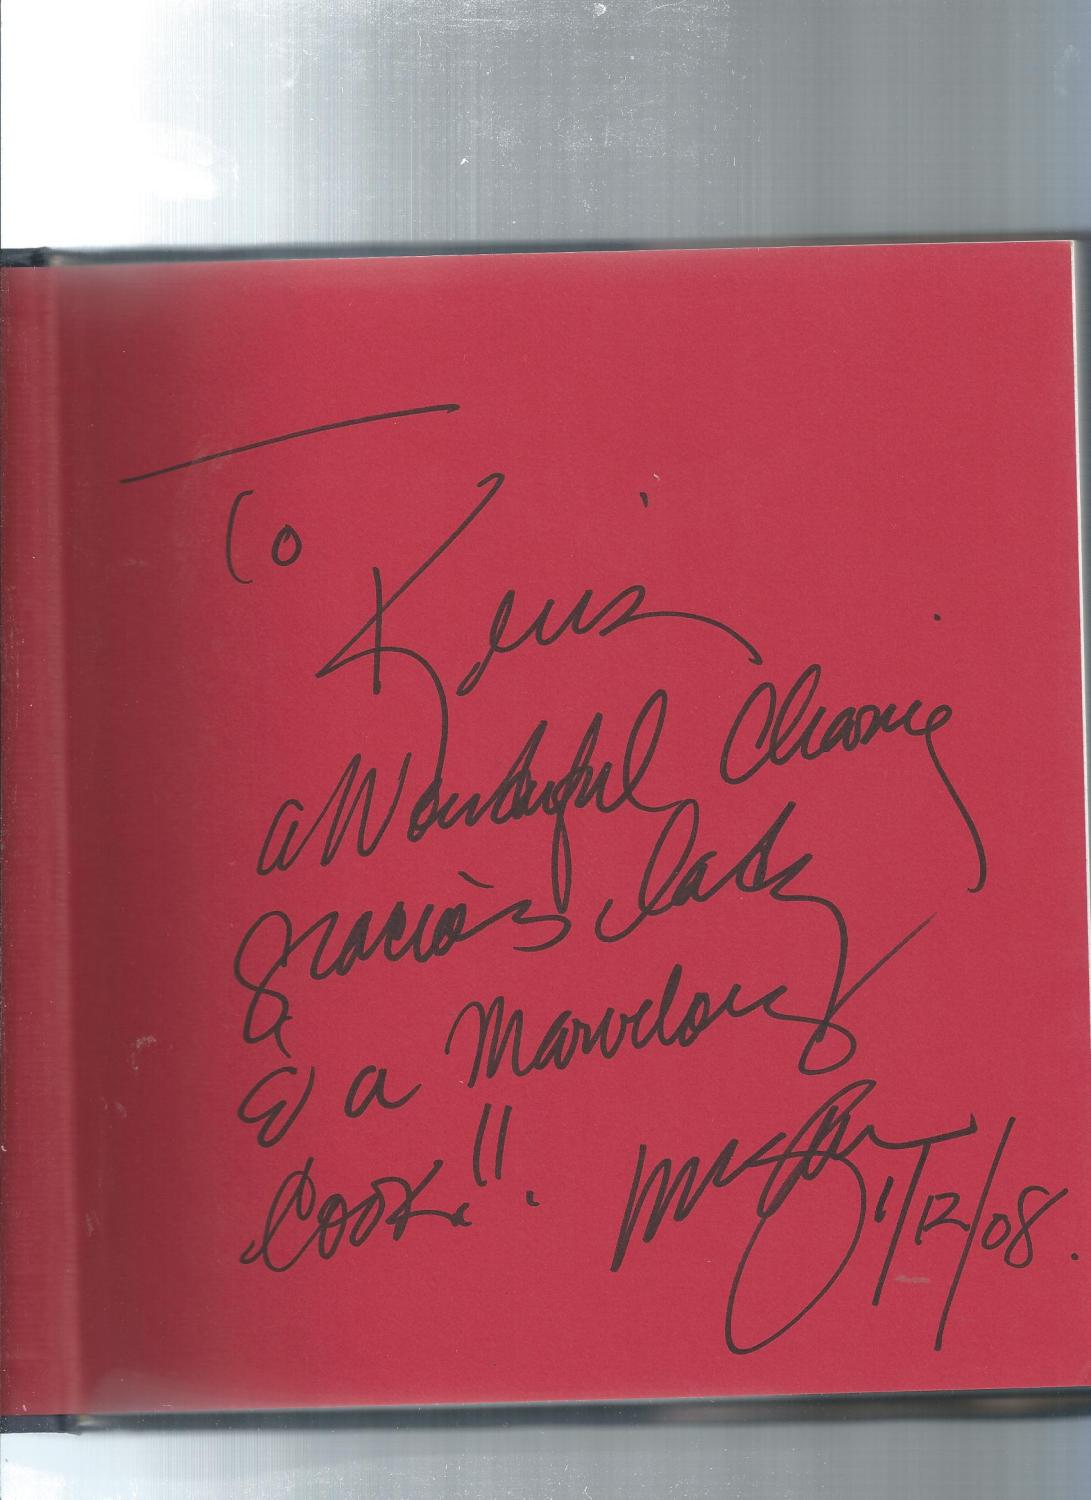 To
a Wonderful Charming
gracious lady
& a Marvelous
Cook!!
1/12/08.